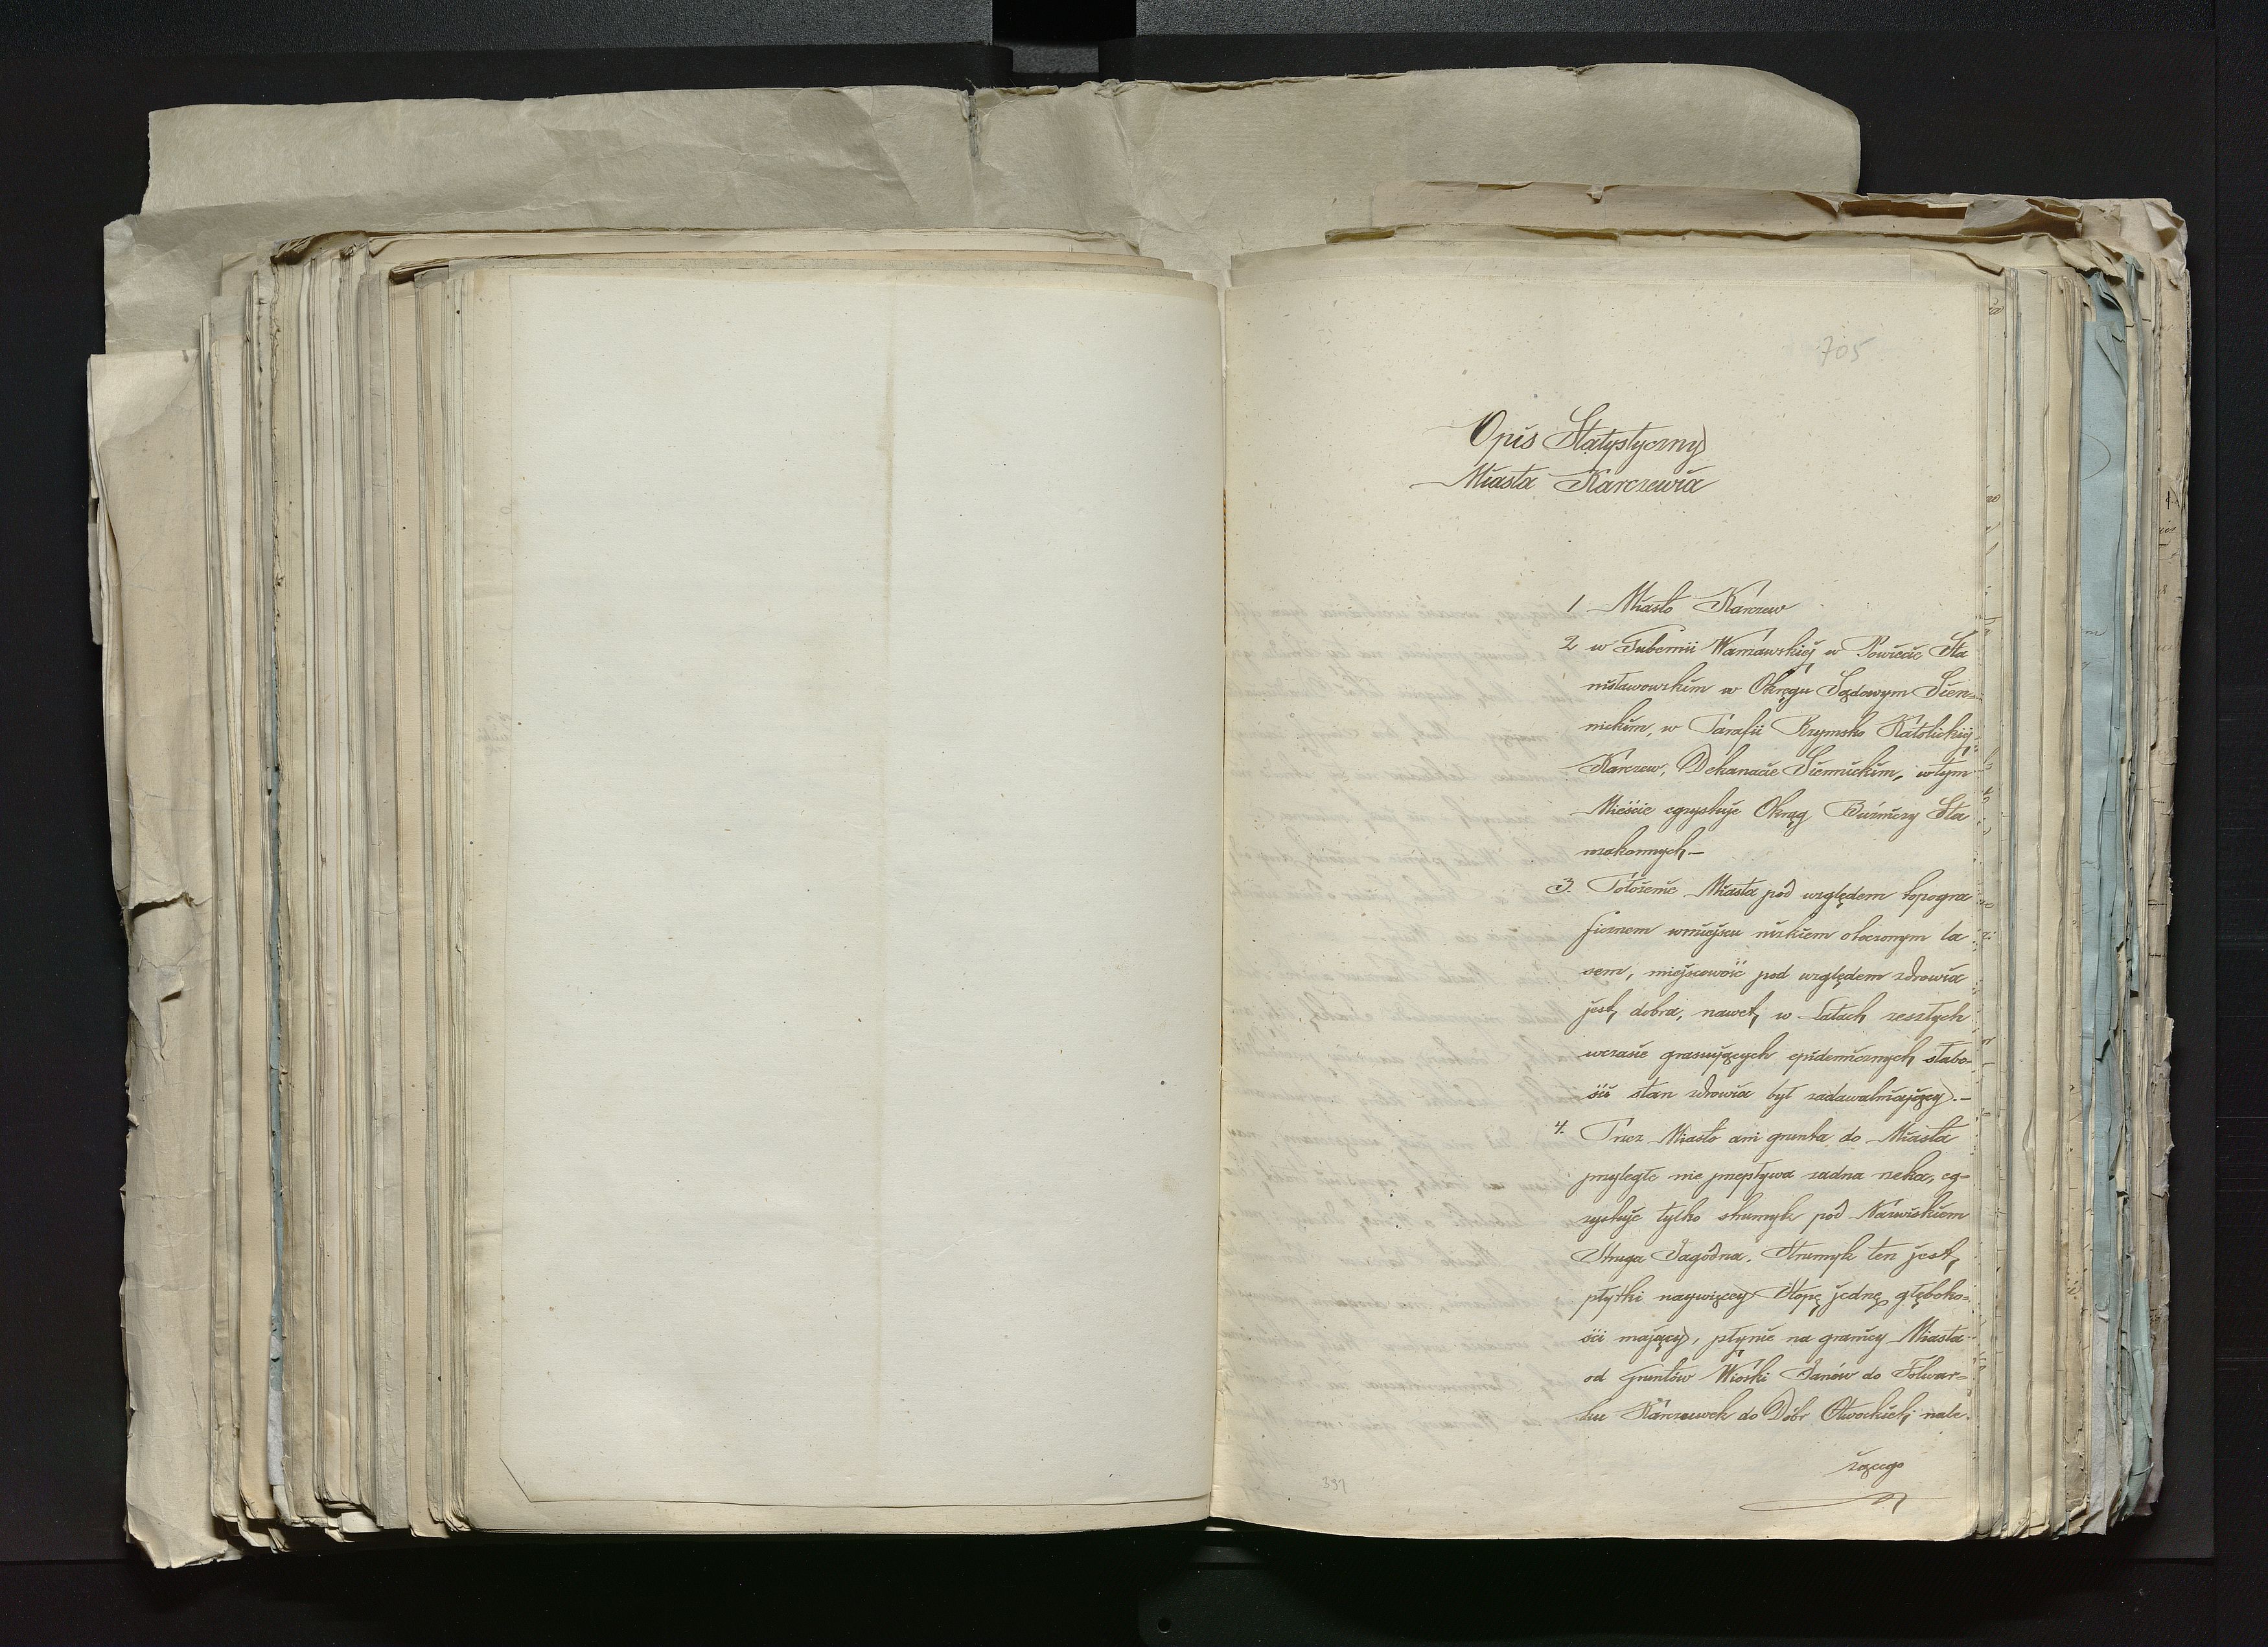 705
Opis Statystyczny
Miasta Karczewia
1 Miasto Karczew
2 w Gubernii Warszawskiej w Powiecie Sta
nisławowskim w Okręgu Sądowym Sien=
nickim, w Parafii Rzymsko Katolickiej
Karczew, Dekanacie Siennickim, w tym
Mieście egzystuje Okrąg Bużniczy Sta
rozakonnych —
3. Położenie Miasta pod względem topogra
ficznem w miejscu nizkiem otoczonym la
sem, miejscowość pod względem zdrowia
jest dobra, nawet w Latach zeszłych
wczasie grasujących epidemicznych słabo=
ści stan zdrowia był zadawalniający. —
4. Przez Miasto ani grunta do Miasta
przyległe nie przepływa żadna rzeka, eg=
zystuje tylko strumyk pod Nazwiskiem
Struga Jagodna. Strumyk ten jest
płytki naywięcey Stopę jednę głęboko=
ści mający, płynie na granicy Miasta
od Gruntów Wioski Janów do Folwar=
ku Karczewek do Dóbr Otwockich nale=
żącego
391